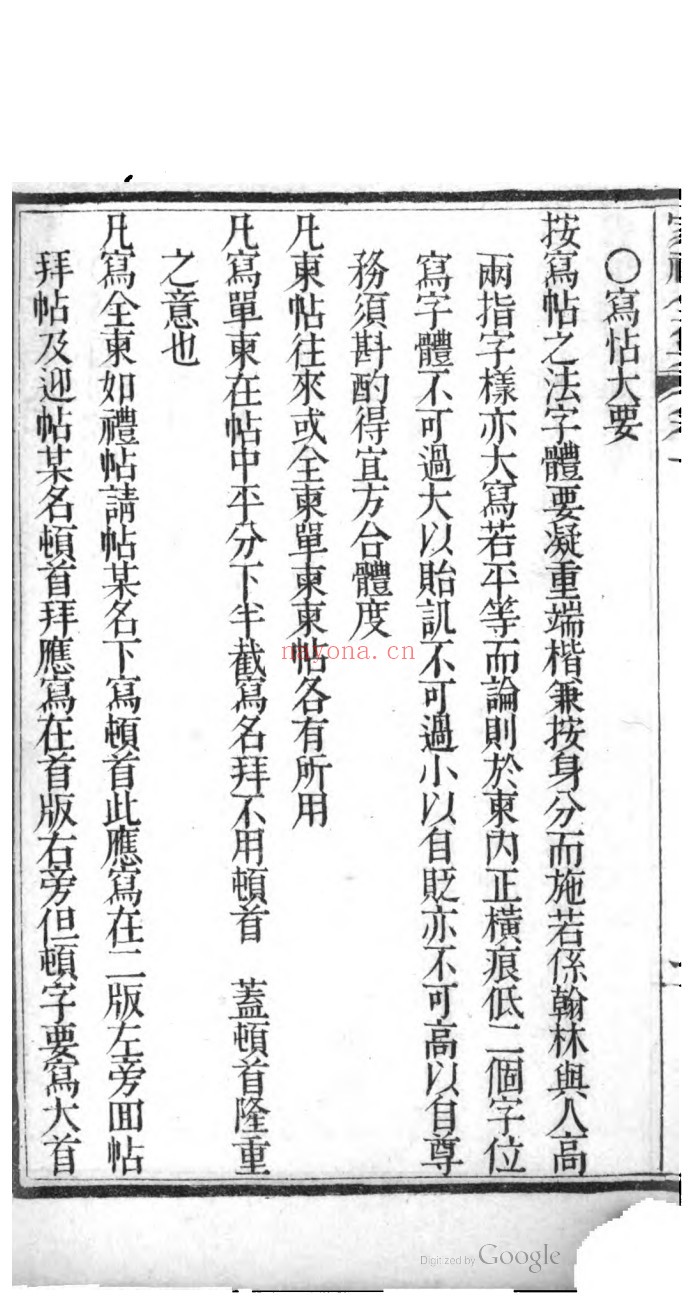 〇寫帖大要
按寫帖之法字體要凝重端楷兼按身分而施若係翰林與人高
兩指字樣亦大寫若平等而論則於柬內正橫痕低二個字位
寫字體不可過大以貽訕不可過小以自貶亦不可高以自尊
務須斟酌得宜方合體度
凡柬帖往來或全柬單柬柬帖各有所用
凡寫單柬在帖中平分下半截寫名拜不用頓首 蓋頓首隆重
之意也
凡寫全柬如禮帖請帖某名下寫頓首此應寫在二版左旁回帖
拜帖及迎帖某名頓首拜應寫在首版右旁但頓字要寫大首
nayona.cn
Digitized by Google